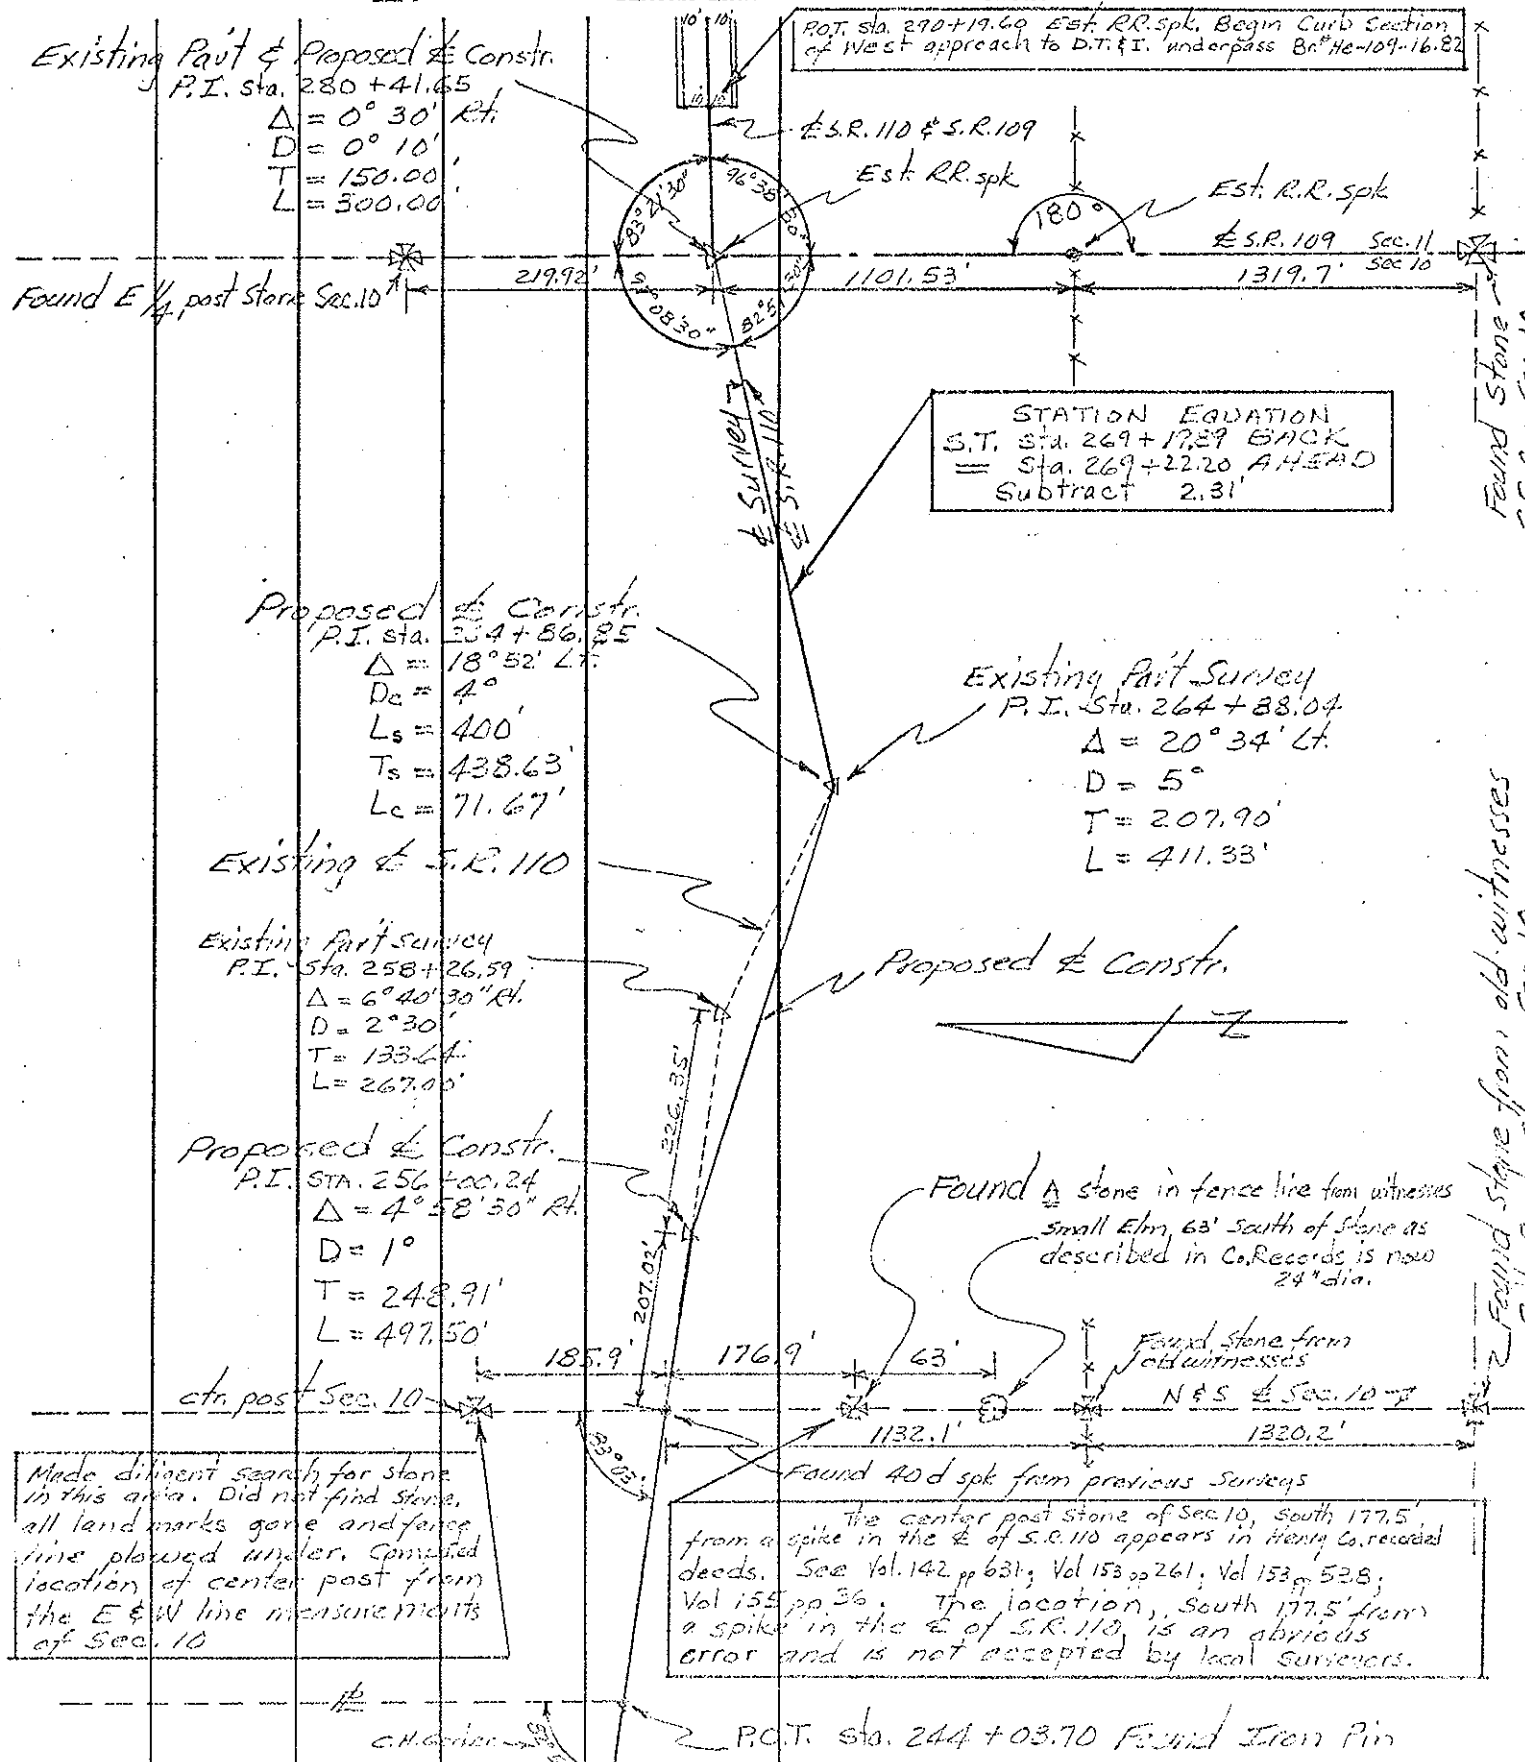 10' 10'
P.O.T. Sta. 290+19.69 Est. RR. spk. Begin Curb Section
of West approach to D.T.&I. underpass Br.# He-109-16.82
Existing Pav't & Proposed ℄ Constr.
P.I. Sta. 280+41.65
Δ = 0° 30' Rt.
D = 0° 10'
T = 150.00'
L = 300.00'
10' 10'
℄ S.R. 110 & S.R. 109
Est. RR. spk
Est. R.R. spk
83° 21' 30"
96° 38' 30"
180°
℄ S.R. 109 Sec. 11
Sec 10
Found E 1/4 post Stone Sec. 10
219.92'
1101.53'
1319.7'
97° 08' 30"
82° 51' 30"
Found Stone
℄ Survey
℄ S.R. 110
STATION EQUATION
S.T. Sta. 269+ BACK
= Sta. 269+22.20 AHEAD
Subtract 2.31'
Proposed ℄ Constr.
P.I. Sta. + 86.85
Δ = 18° 52' Lt.
Dc = 4°
Ls = 400'
Ts = 438.63'
Lc = 71.67'
Existing Pav't Survey
P.I. Sta. 264+88.04
Δ = 20° 34' Lt.
D = 5°
T = 207.90'
L = 411.33'
Existing ℄ S.R. 110
Existing Pav't Survey
P.I. Sta. 258+26.59
Δ = 6° 40' 30" Rt.
D = 2° 30'
T = 133.64'
L = 267.00'
Proposed ℄ Constr.
Z
226.35'
Found stone from old witnesses
Proposed ℄ Constr.
P.I. STA. 256+00.24
Δ = 4° 58' 30" Rt.
D = 1°
T = 248.91'
L = 497.50'
207.02'
Found stone in fence line from witnesses
Small Elm, 63' South of Stone as
described in Co. Records is now
24" dia.
185.9'
176.9'
63'
Found stone from
old witnesses
ctr. post Sec. 10
N & S ℄ Sec. 10
1132.1'
1320.2'
83° 03'
Found 40d spk from previous Surveys
Made diligent search for stone
in this area. Did not find stone,
all land marks gone and fence
line plowed under. Computed
location of center post from
the E & W line measurements
of Sec. 10
The center post stone of Sec 10, South 177.5'
from a spike in the ℄ of S.R. 110 appears in Henry Co. recorded
deeds. See Vol. 142 pp 631; Vol 153 pp 261; Vol 153 pp 538;
Vol 155 pp 36. The location, South 177.5' from
a spike in the ℄ of S.R. 110, is an obvious
error and is not accepted by local Surveyors.
P.O.T. Sta. 244+03.70 Found Iron Pin